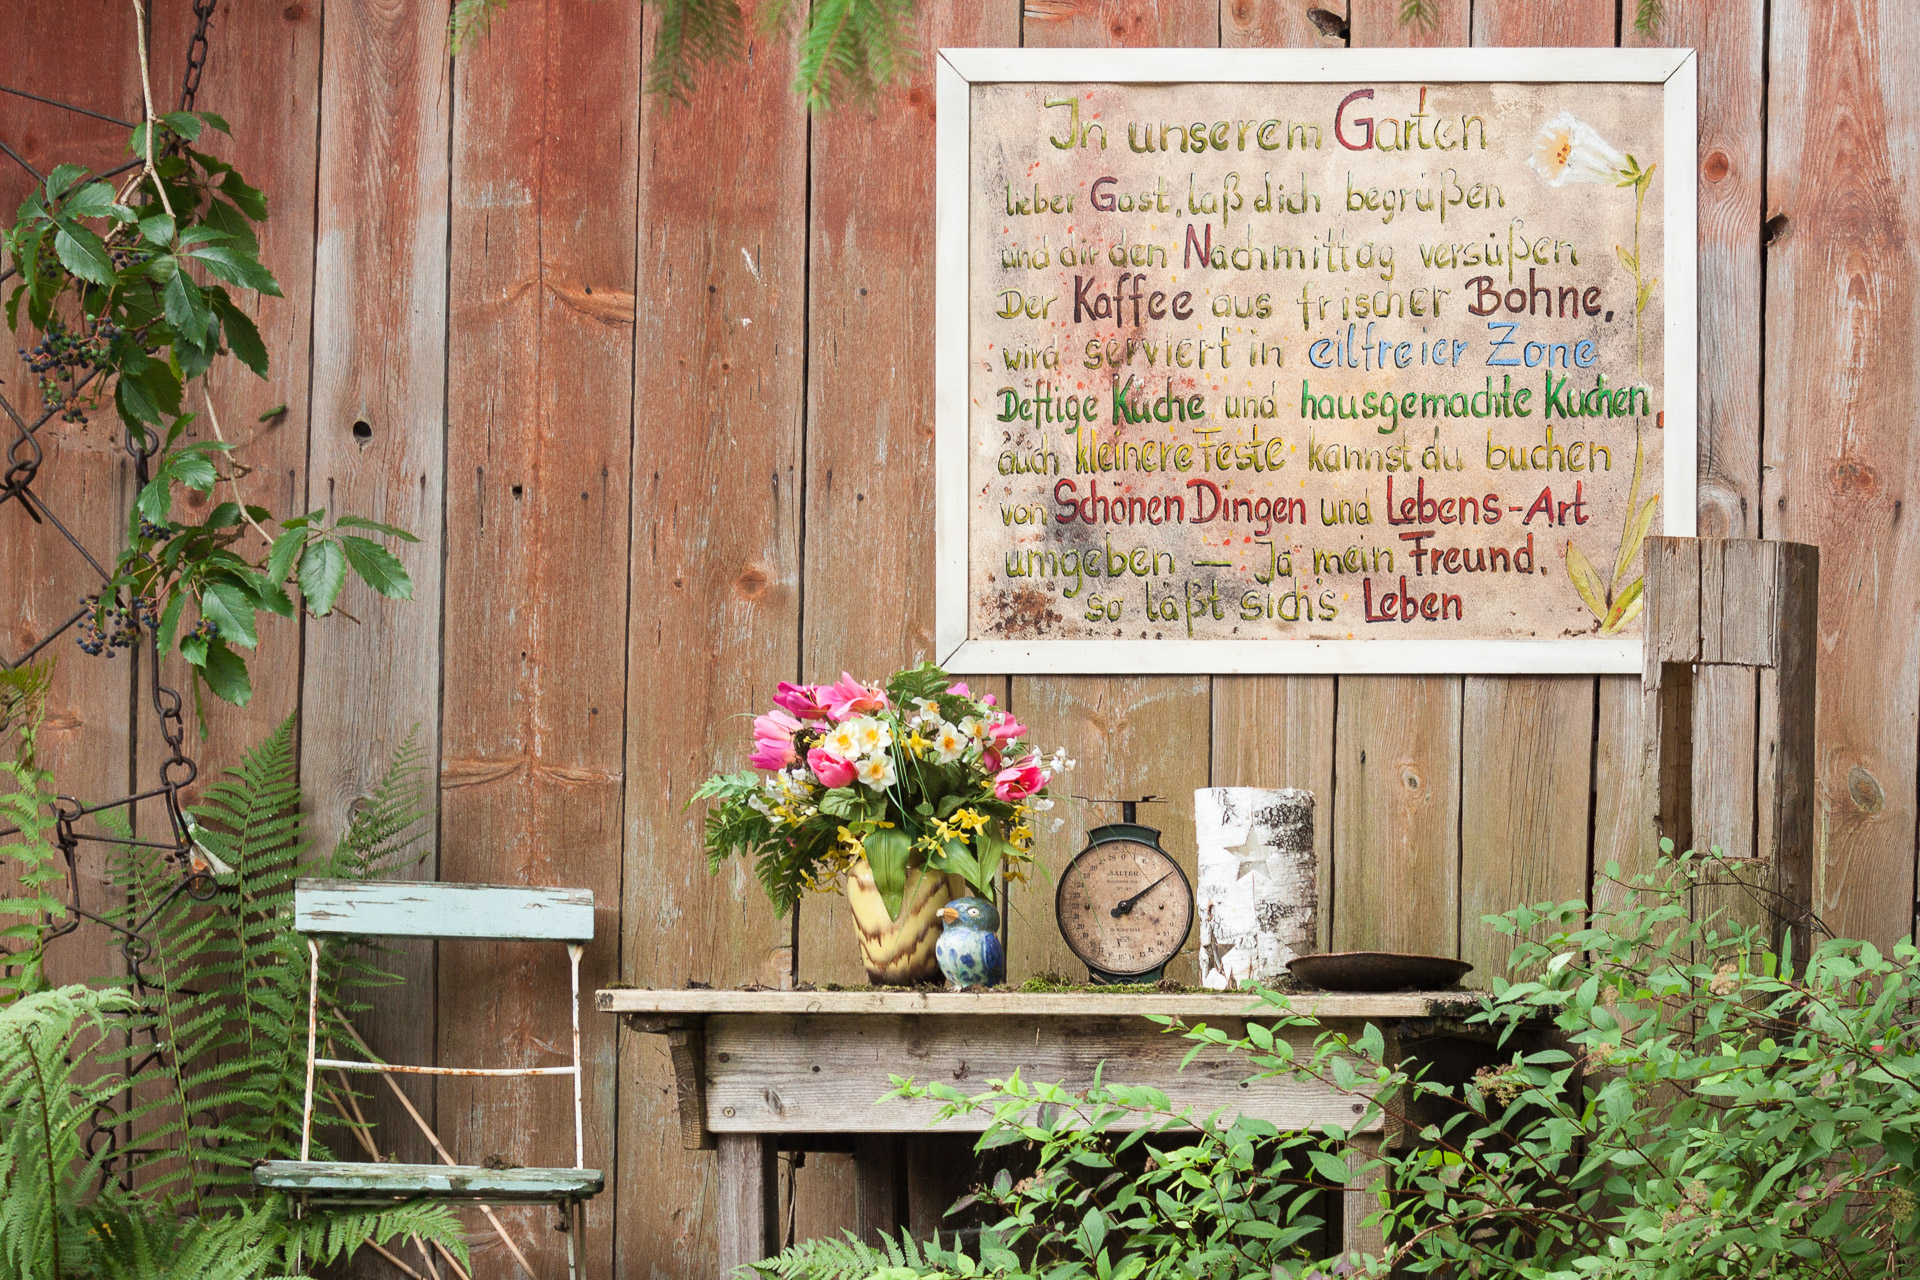 In unserem Garten
lieber Gast, laß dich begrüßen
und dir den Nachmittag versüßen
Der Kaffee aus frischer Bohne,
wird serviert in eilfreier Zone
Deftige Küche und hausgemachte Kuchen,
auch kleinere Feste kannst du buchen
von Schönen Dingen und Lebens-Art
umgeben — Ja mein Freund.
so läßt sichs Leben
SALTER